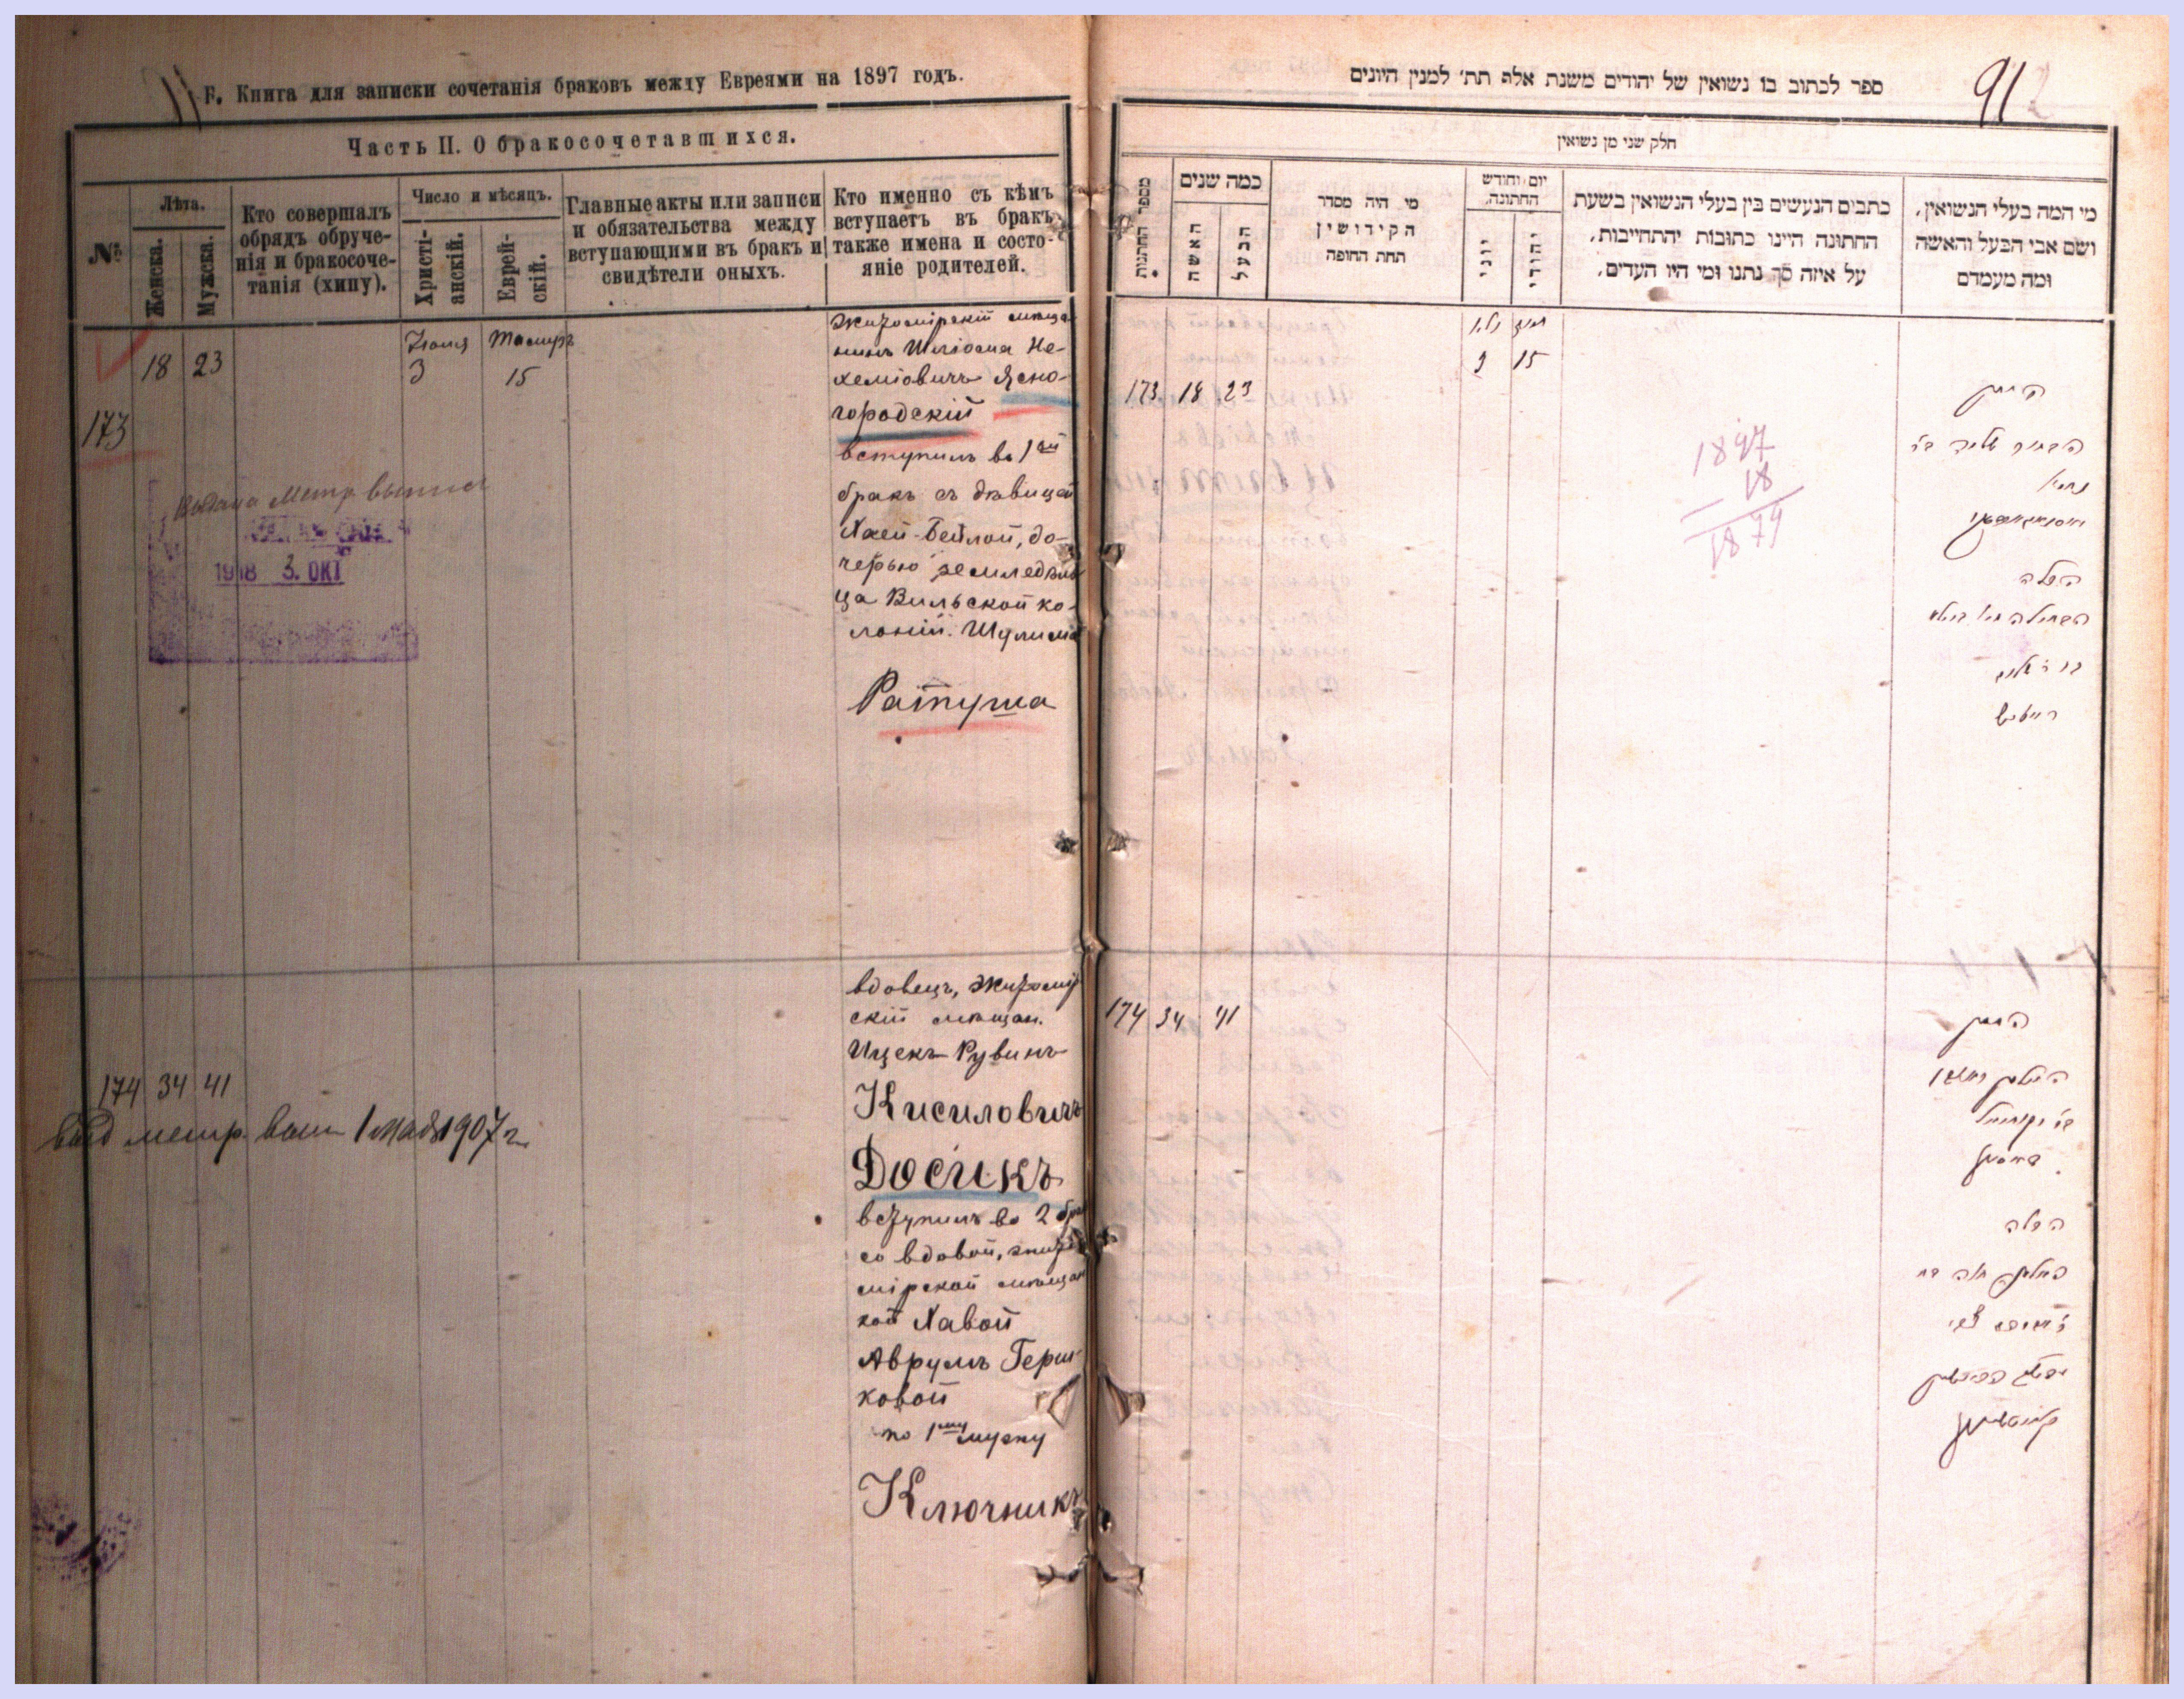 F. Книга для записки сочетанія браковъ между Евреями на 1897 годъ.
Часть II. О бракосочетавшихся.
№
Лѣта.
Женска.
Мужска.
Кто совершалъ
обрядъ обруче-
нія и бракосоче-
танія (хипу).
Число и мѣсяцъ.
Христі-
анскій.
Еврей-
скій.
Главные акты или записи
и обязательства между
вступающими въ бракъ и
свидѣтели оныхъ.
Кто именно съ кѣмъ
вступаетъ въ бракъ,
также имена и состо-
яніе родителей.
173
18
23
Іюля
3
15
Житомірскій мѣща-
нинъ Шліома Не-
хеміовичъ Ясно-
городскій
вступилъ во 1ый
бракъ съ дѣвицей
Хаей-Бейлой, до-
черью земледѣль
ца Вильской ко-
лоніи. Шулима
Ратуша
Выдана Метр
1918 3. ОКТ
174
34
41
выд метр. вып 1 мая 1907 г.
вдовецъ, житомір
скій мѣщан.
Ицекъ-Рувинъ
Кисиловичъ
Досикъ
вступилъ во 2 бра
со вдовой, жито
мірской мѣщан
кой Хавой
Аврумъ Герш-
ковой
по 1му мужу
Ключникъ
ספר לכתוב בו נשואין של יהודים משנת אלף תת׳ למנין היונים
91
חלק שני מן נשואין
מספר החתנות
כמה שנים
האשה
הבעל
מי היה מסדר
הקידושין
תחת החופה
יום וחודש
החתונה
יוני
יהודי
כתבים הנעשים בין בעלי הנשואין בשעת
החתונה היינו כתובות והתחייבות,
על איזה סך נתנו ומי היו העדים,
מי המה בעלי הנשואין,
ושם אבי הבעל והאשה
ומה מעמדם
173
18
23
3
15
1897
18
1879
החתן
הכלה
174
34
41
החתן
הכלה